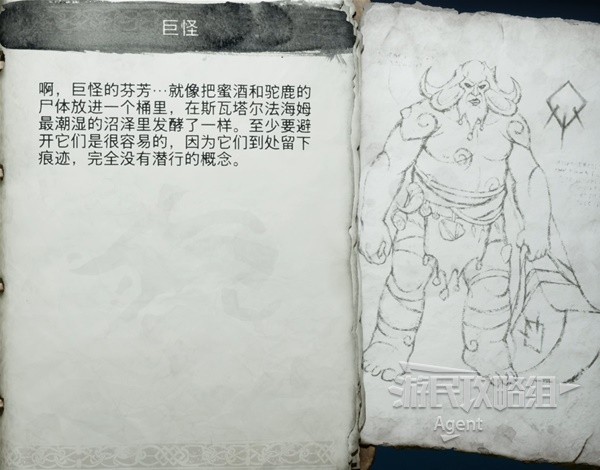 巨怪
啊，巨怪的芬芳…就像把蜜酒和驼鹿的
尸体放进一个桶里，在斯瓦塔尔法海姆
最潮湿的沼泽里发酵了一样。至少要避
开它们是很容易的，因为它们到处留下
痕迹，完全没有潜行的概念。
游民攻略组
Agent